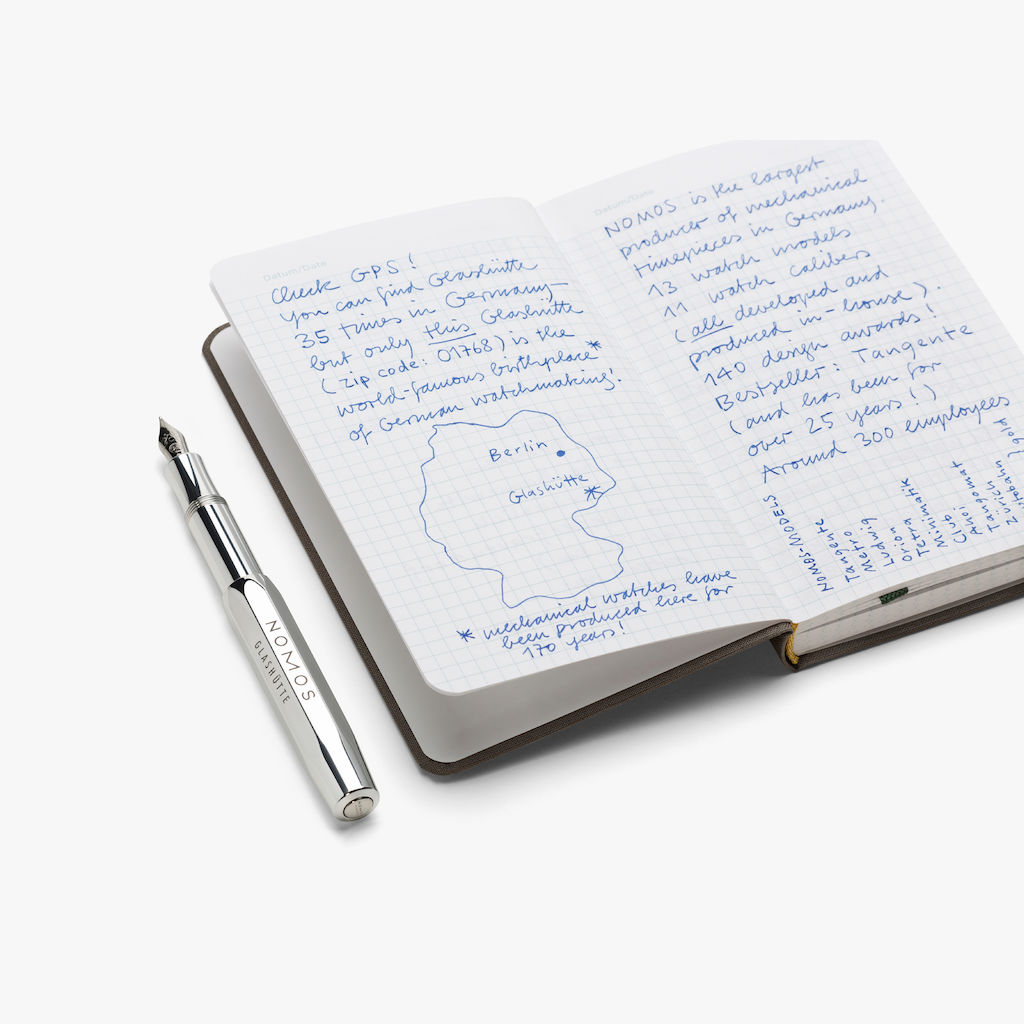 Datum/Date
Check GPS!
You can find Glashütte
35 times in Germany—
but only this Glashütte
(zip code: 01768) is the
world-famous birthplace*
of German watchmaking!
Berlin
Glashütte
*
* mechanical watches have
been produced here for
170 years!
Datum/Date
NOMOS is the largest
producer of mechanical
timepieces in Germany.
13 watch models
11 watch calibers
(all developed and
produced in-house).
140 design awards!
Bestseller: Tangente
(and has been for
over 25 years!)
Around 300 employees
NOMOS-MODELS
Tangente
Metro
Ludwig
Orion
Tetra
Minimatik
Club
Ahoi
Tangomat
Zürich
gold
NOMOS
GLASHÜTTE